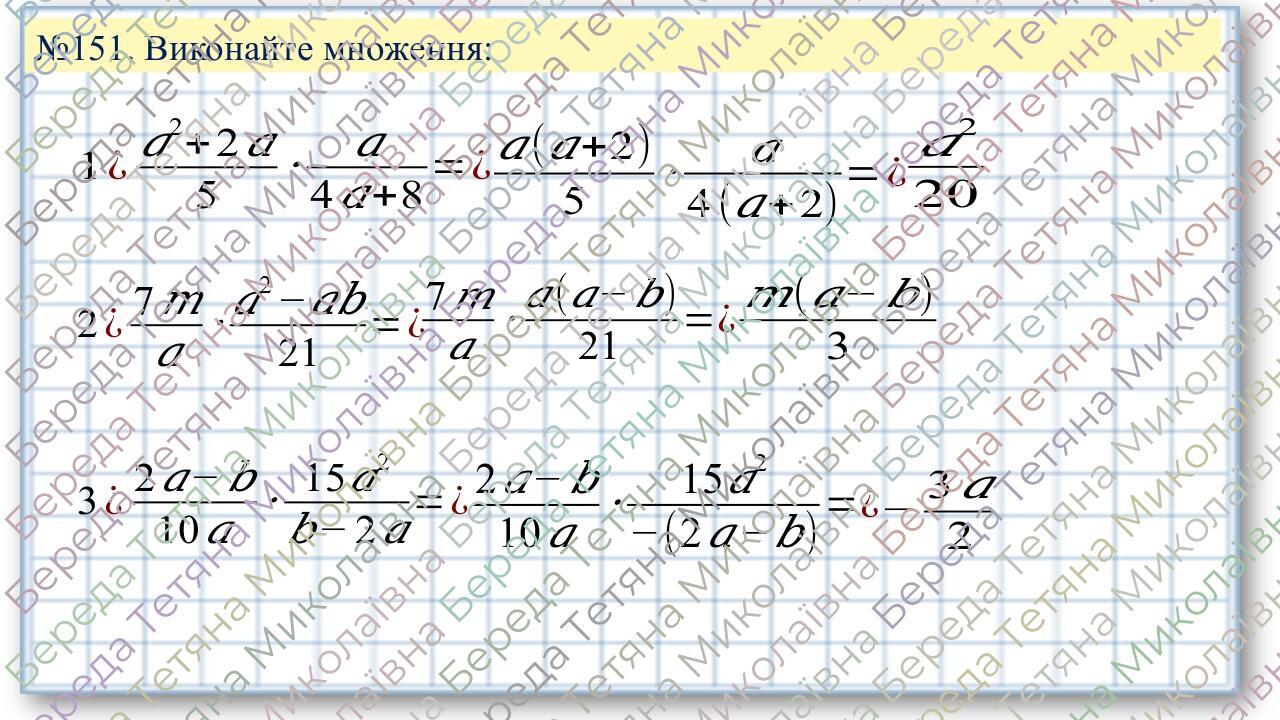 №151. Виконайте множення:
1¿ (a²+2a)/5 · a/(4a+8) =¿ a(a+2)/5 · a/(4(a+2)) =¿ a²/20
2¿ 7m/a · (a²−ab)/21 =¿ 7m/a · a(a−b)/21 =¿ m(a−b)/3
3¿ (2a−b)/10a · 15a²/(b−2a) =¿ (2a−b)/10a · 15a²/(−(2a−b)) =¿ −3a/2
Береда Тетяна Миколаївна